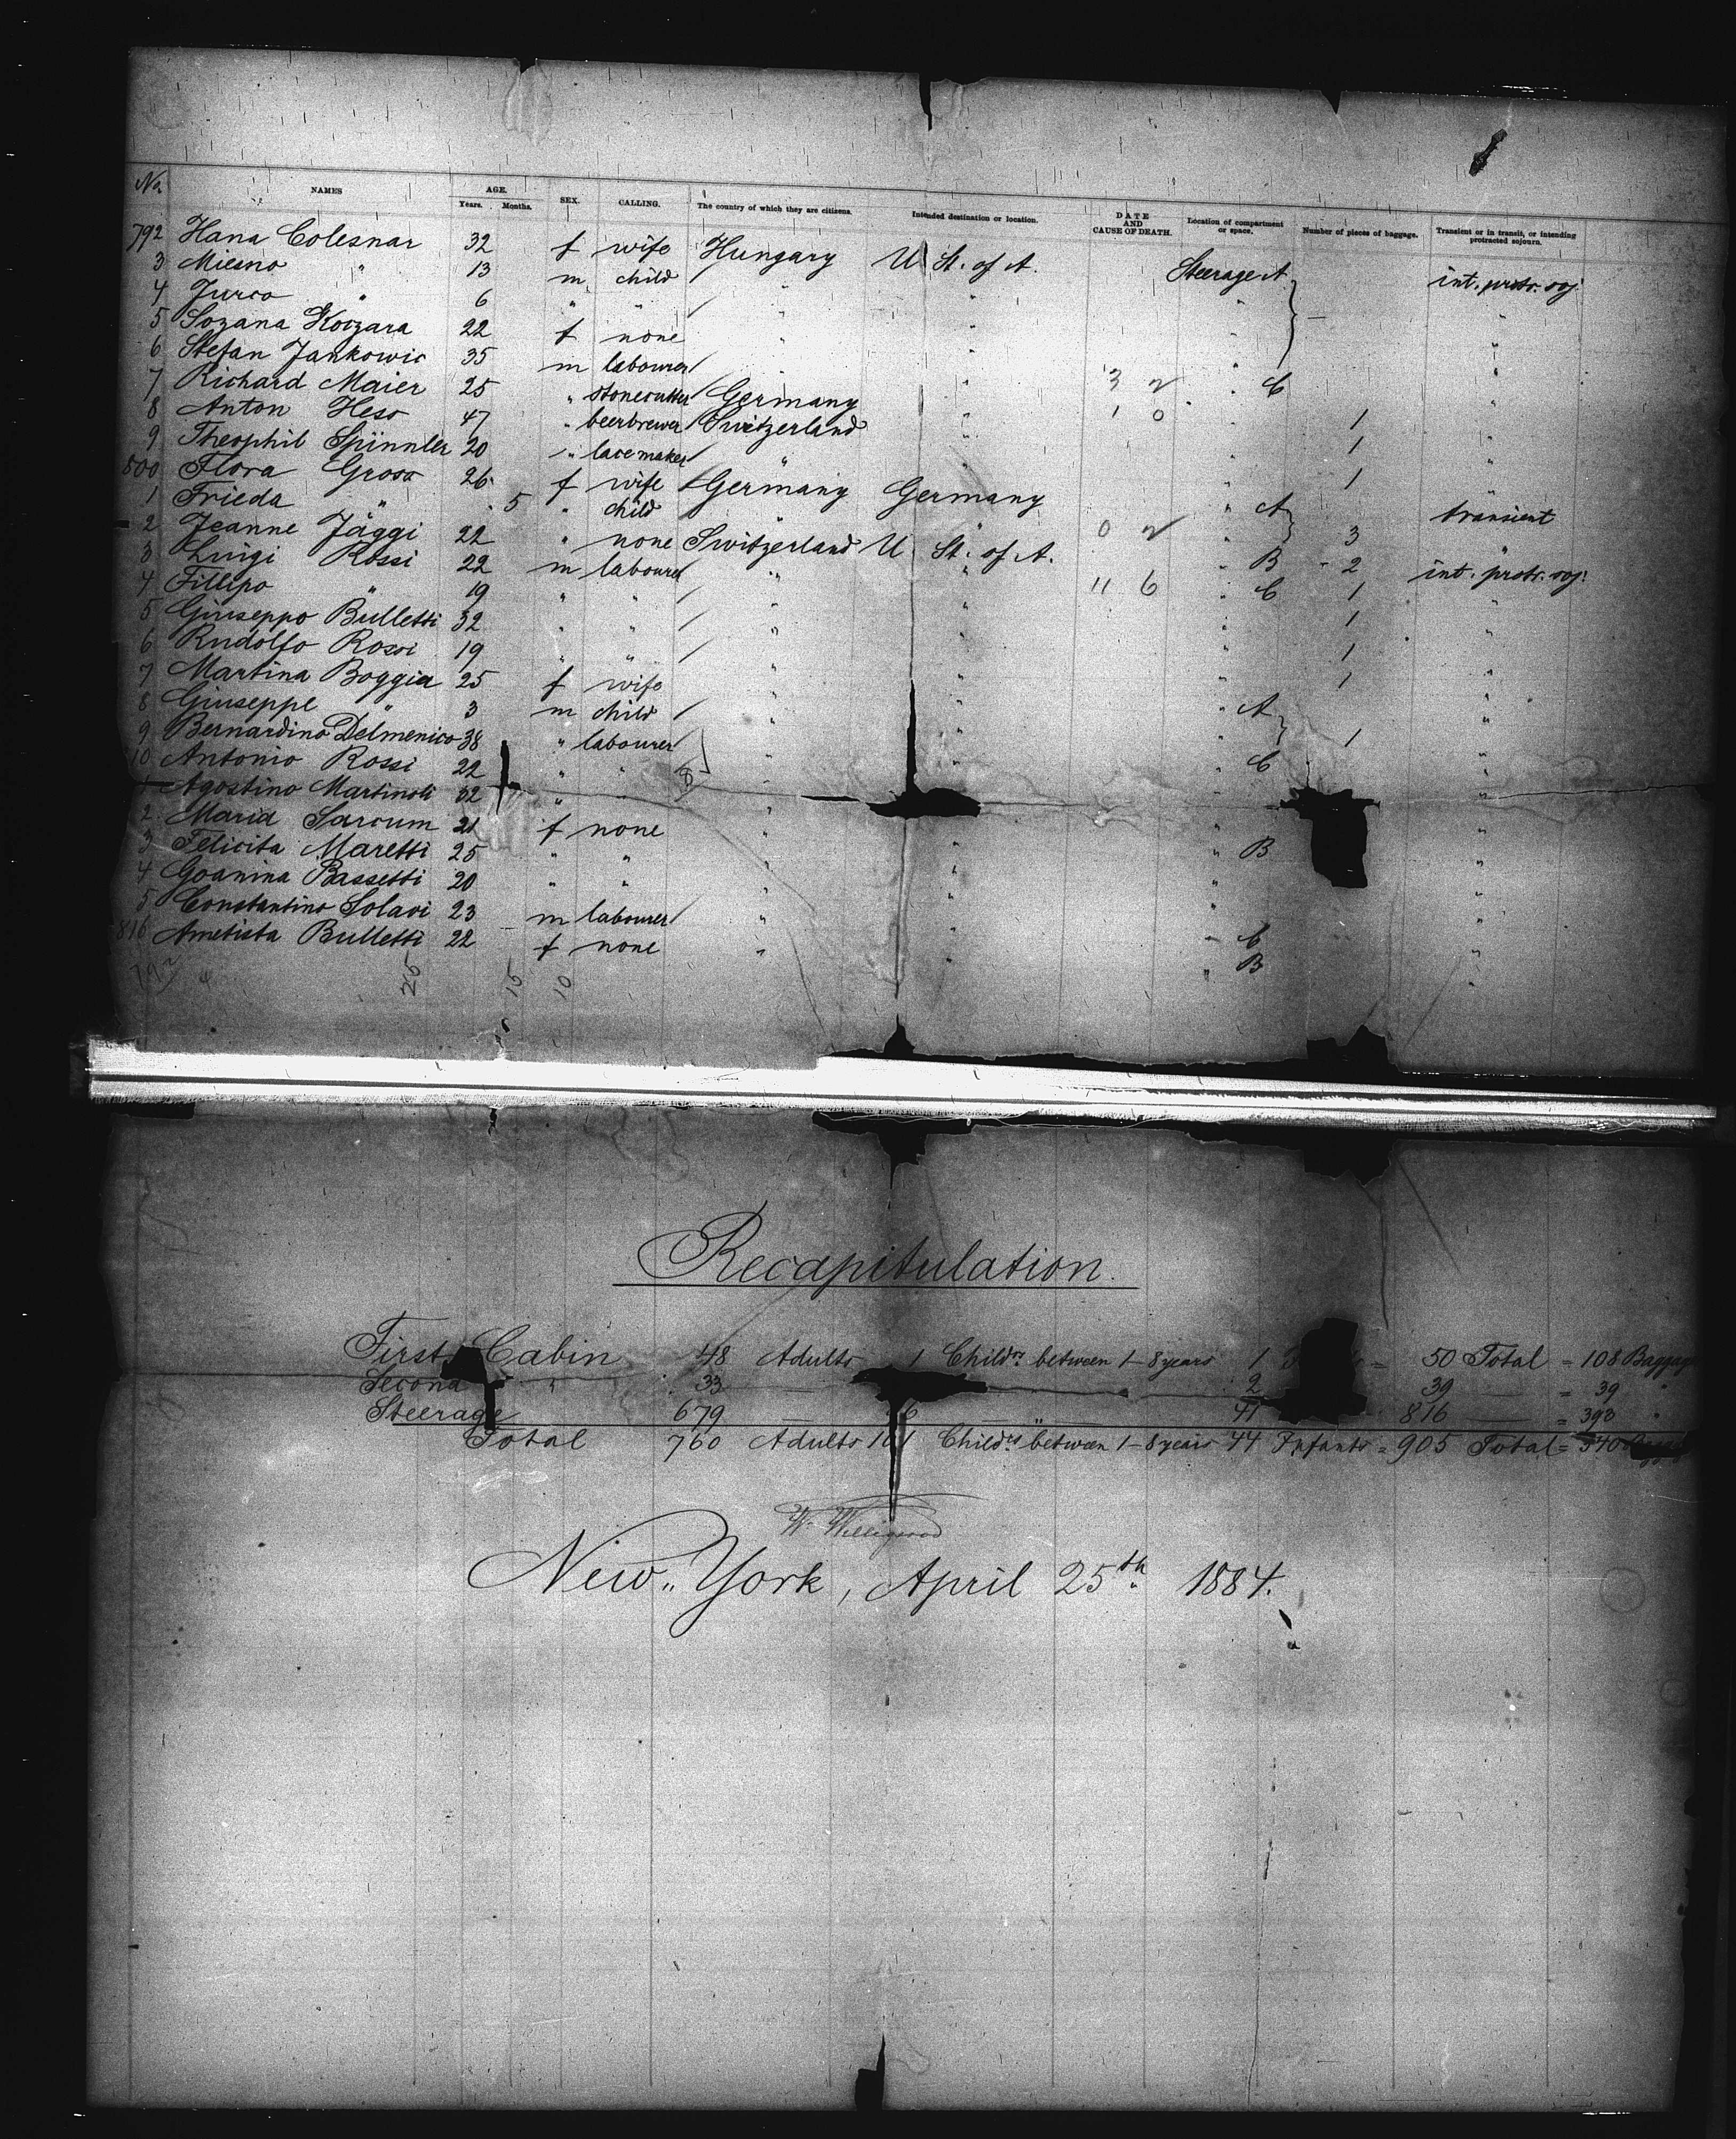 No. NAMES AGE. Years. Months. SEX. CALLING. The country of which they are citizens. Intended destination or location. DATE AND CAUSE OF DEATH. Location of compartment or space. Number of pieces of baggage. Transient or in transit, or intending protracted sojourn.
792 Hana Colesnar 32 f wife Hungary U. St. of A. Steerage A int. protr. soj.
3 Miesno " 13 m child " " " "
4 Jurco " 6 " " " " " "
5 Sozana Koczara 22 f none " " " "
6 Stefan Jankowic 35 m labourer " " 3 2 " C "
7 Richard Maier 25 " stonecutter Germany " 1 0 " 1 "
8 Anton Hess 47 " beerbrewer Switzerland " " 1 "
9 Theophil Spünnler 20 " lacemaker " " " 1 "
800 Flora Gross 26 f wife Germany Germany " A transient
1 Frieda " 5 " child " " 0 2 " 3 "
2 Jeanne Jäggi 22 " none Switzerland U. St. of A. " B 2 int. protr. soj.
3 Luigi Rossi 22 m labourer " " 11 6 " C 1 "
4 Fillipo " 19 " " " " " 1 "
5 Giuseppo Bulletti 32 " " " " " 1 "
6 Rudolfo Rossi 19 " " " " " 1 "
7 Martina Boggia 25 f wife " " " A "
8 Giuseppe " 3 m child " " " 1 "
9 Bernardino Delmenico 38 " labourer " " " C "
10 Antonio Rossi 22 " " " "
1 Agostino Martinoli 32 " " " "
2 Maria Sarcum 21 f none " " " B "
3 Felicita Maretti 25 " " " " " "
4 Goanina Bassetti 20 " " " " " "
5 Constantino Solavi 23 m labourer " " " C "
816 Ametista Bulletti 22 f none " " " B "
25 15 10
Recapitulation.
First Cabin 48 Adults 1 Childrs. between 1-8 years 1 = 50 Total = 108 Baggage
Second " 33 2 39 = 39 "
Steerage 679 41 816 = 393 "
Total 760 Adults 101 Childrs. between 1-8 years 44 Infants = 905 Total = 540
New-York, April 25th 1884.